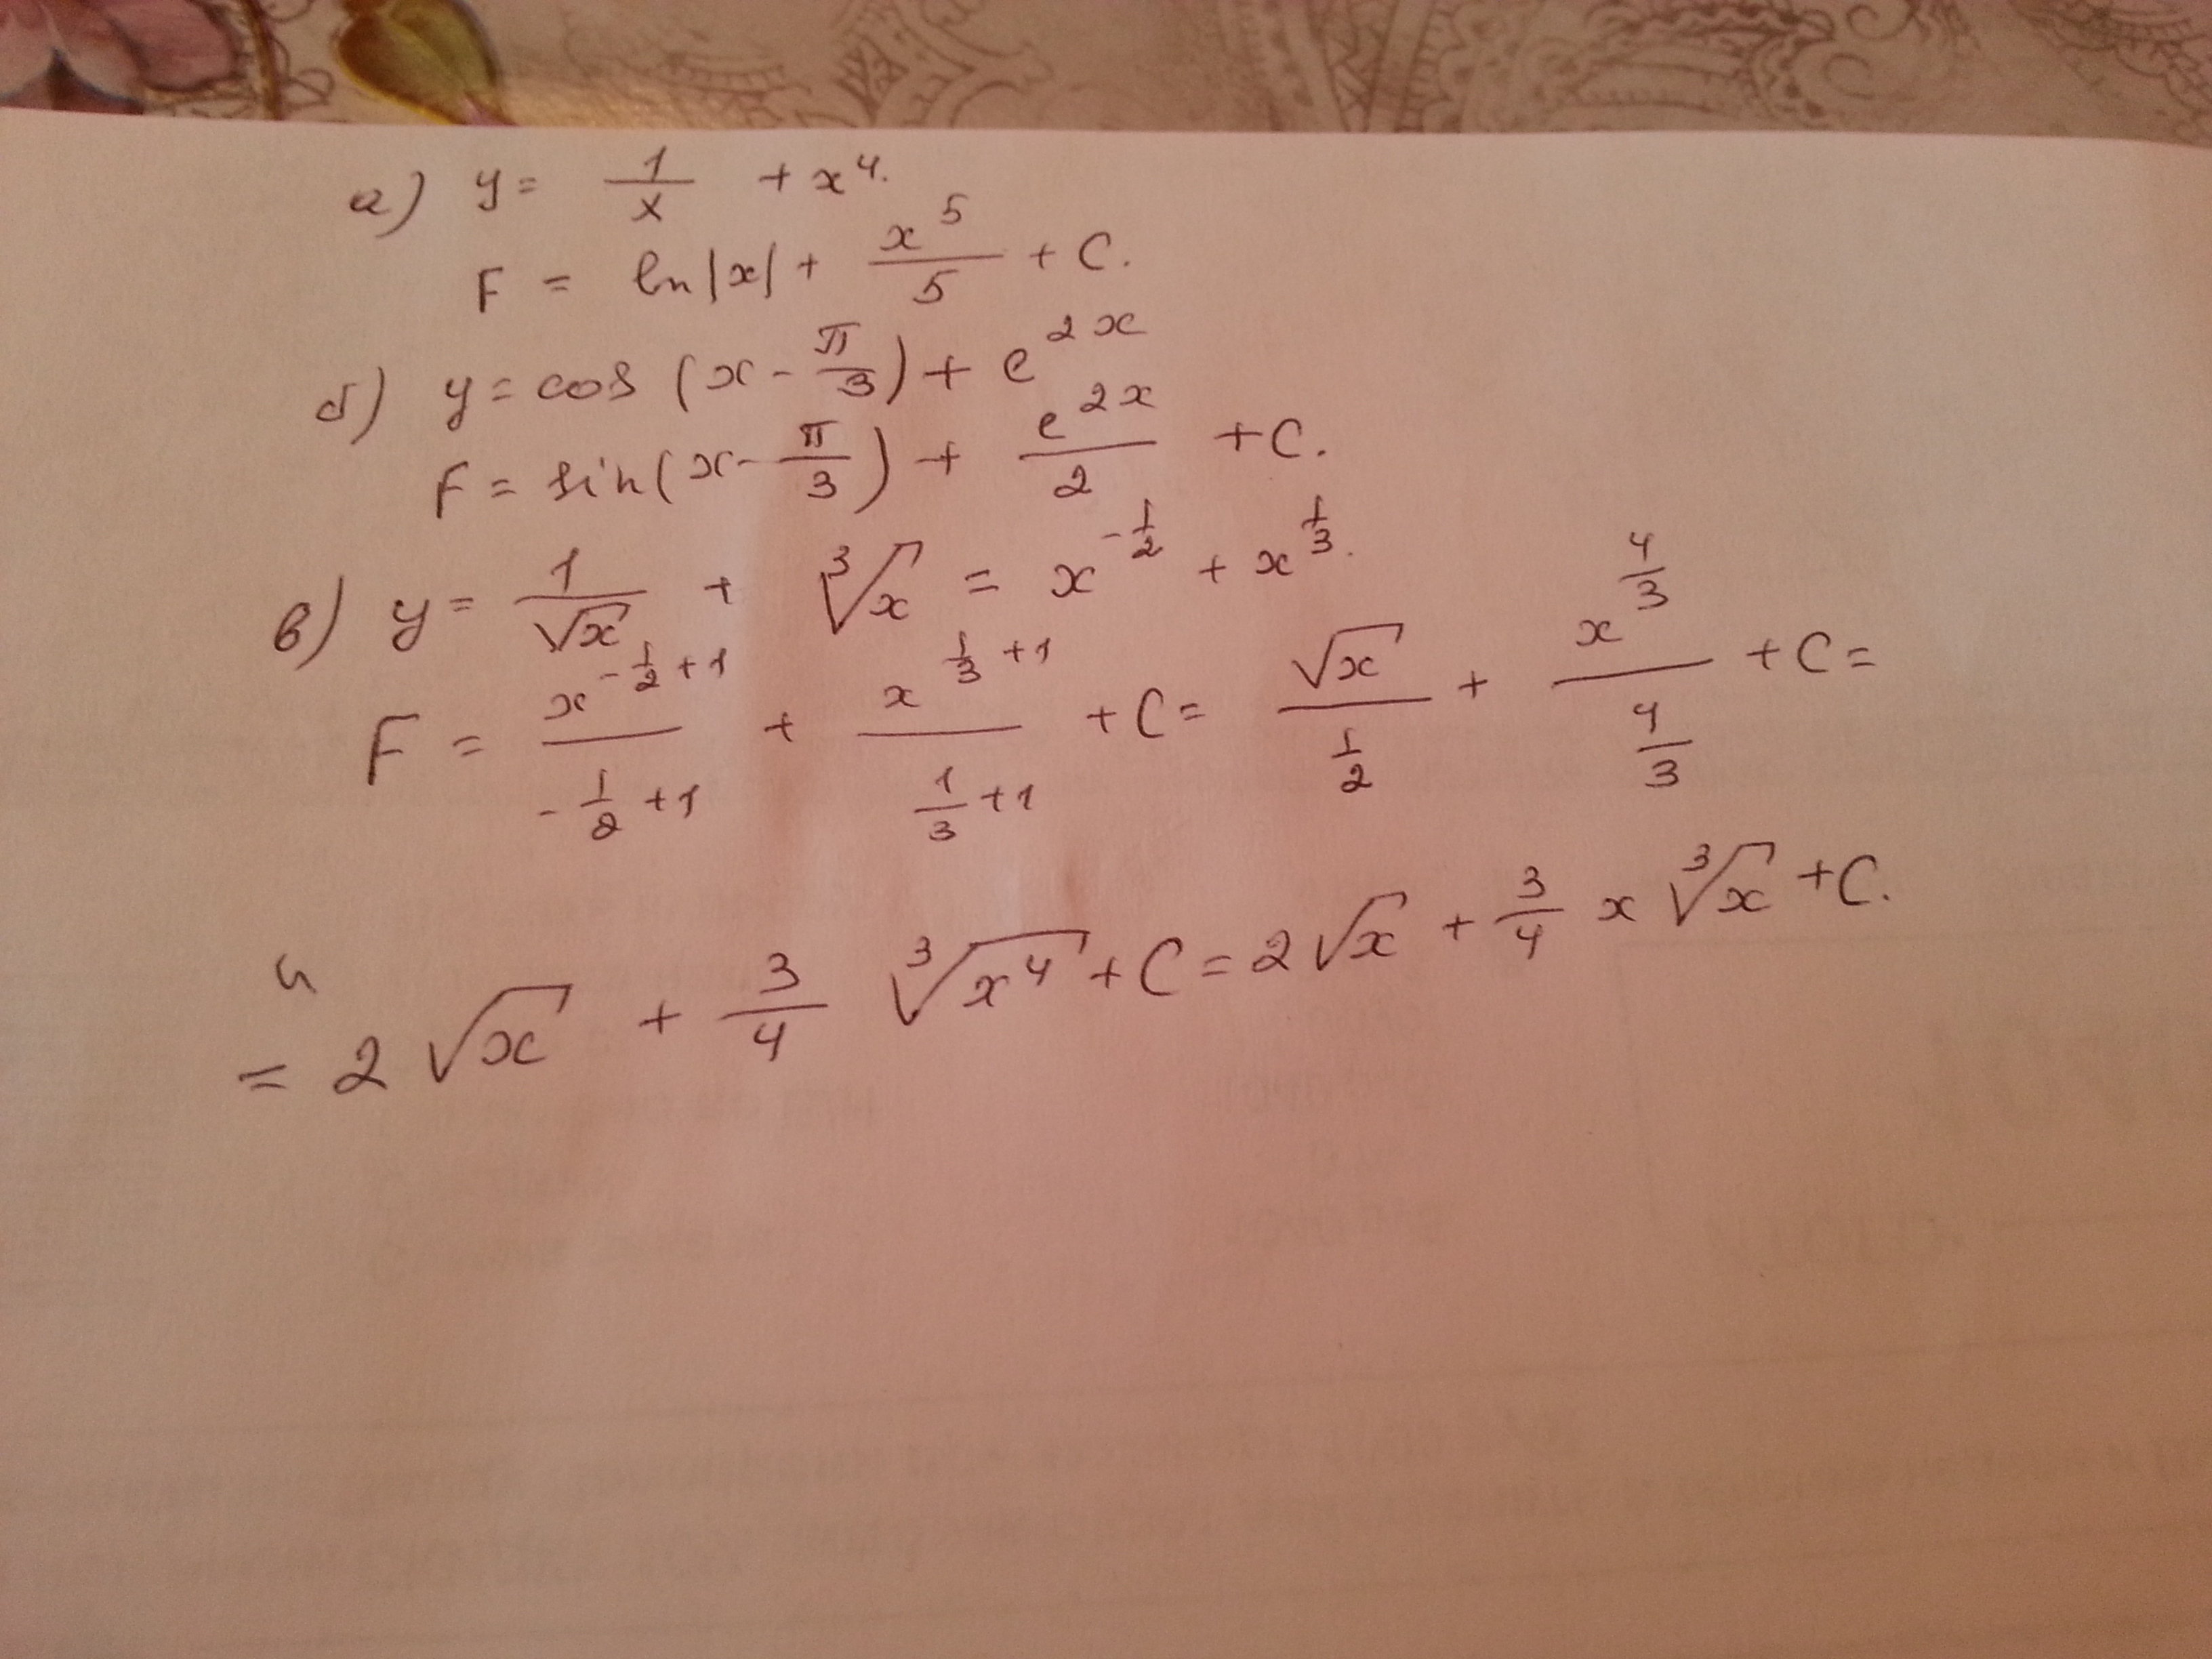 а) y = 1/x + x⁴.
F = ln|x| + x⁵/5 + C.
б) y = cos (x - π/3) + e^(2x)
F = sin(x - π/3) + e^(2x)/2 + C.
в) y = 1/√x + ∛x = x^(-1/2) + x^(1/3).
F = x^(-1/2+1)/(-1/2+1) + x^(1/3+1)/(1/3+1) + C = √x/(1/2) + x^(4/3)/(4/3) + C =
= 2√x + 3/4 ∛(x⁴) + C = 2√x + 3/4 x ∛x + C.